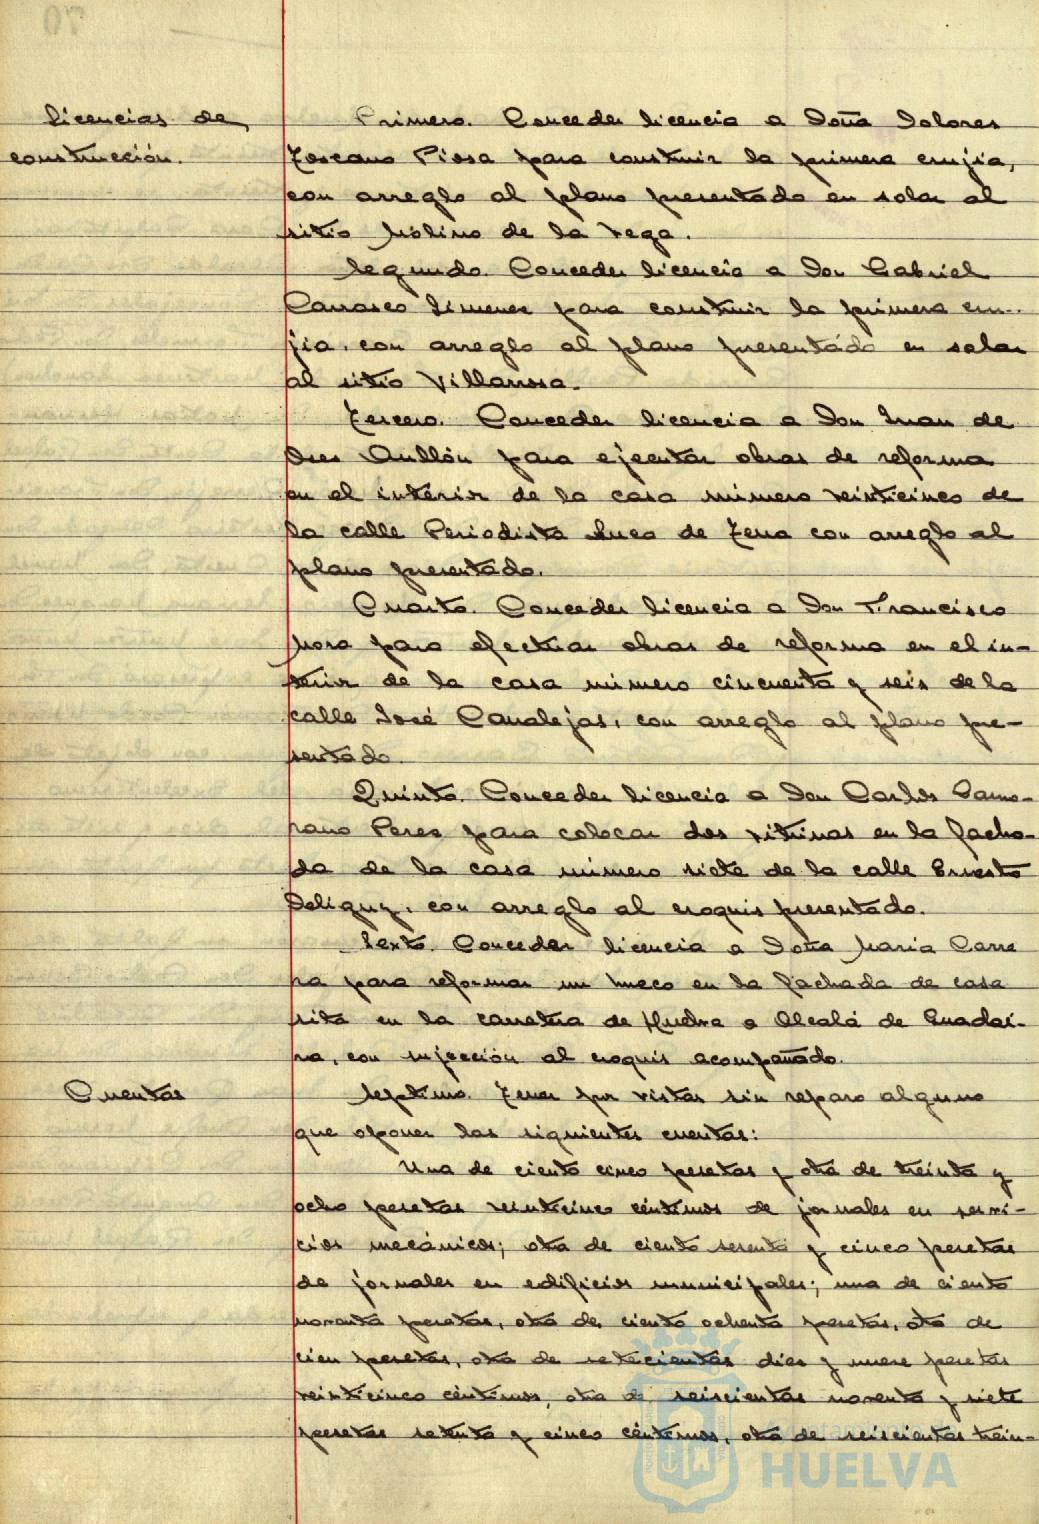 70
Licencias de
construcción.
Primero. Conceder licencia a Doña Dolores
Toscano Piosa para construir la primera crujia,
con arreglo al plano presentado en solar al
sitio Molino de la Vega.
Segundo. Conceder licencia a Don Gabriel
Carrasco Jimenez para construir la primera cru-
jia, con arreglo al plano presentado en solar
al sitio Villarrosa.
Tercero. Conceder licencia a Don Juan de
Dios Aullón para ejecutar obras de reforma
en el interior de la casa número veinticinco de
la calle Periodista Luca de Tena con arreglo al
plano presentado.
Cuarto. Conceder licencia a Don Francisco
Mora para efectuar obras de reforma en el in-
terior de la casa número cincuenta y seis de la
calle José Canalejas, con arreglo al plano pre-
sentado.
Quinto. Conceder licencia a Don Carlos Zamo-
rano Perez para colocar dos vitrinas en la facha-
da de la casa número siete de la calle Ernesto
Deligny, con arreglo al croquis presentado.
Sexto. Conceder licencia a Doña Maria Carre
ra para reformar un hueco en la fachada de casa
sita en la carretera de Huelva a Alcalá de Guadai-
ra, con sujección al croquis acompañado.
Cuentas
Septimo. Tener por vistas sin reparo alguno
que oponer las siguientes cuentas:
Una de ciento cinco pesetas y otra de treinta y
ocho pesetas veinticinco céntimos de jornales en servi-
cios mecánicos; otra de ciento sesenta y cinco pesetas
de jornales en edificios municipales; una de ciento
noventa pesetas, otra de ciento ochenta pesetas, otra de
cien pesetas, otra de setecientas diez y nueve pesetas
veinticinco céntimos, otra de seiscientas noventa y siete
pesetas setenta y cinco céntimos, otra de seiscientas trein-
Ayuntamiento
HUELVA